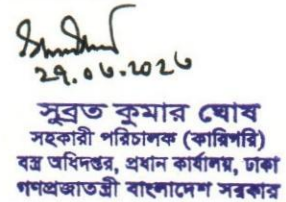 সুব্রত কুমার ঘোষ
সহকারী পরিচালক (কারিগরি)
বস্ত্র অধিদপ্তর, প্রধান কার্যালয়, ঢাকা
গণপ্রজাতন্ত্রী বাংলাদেশ সরকার